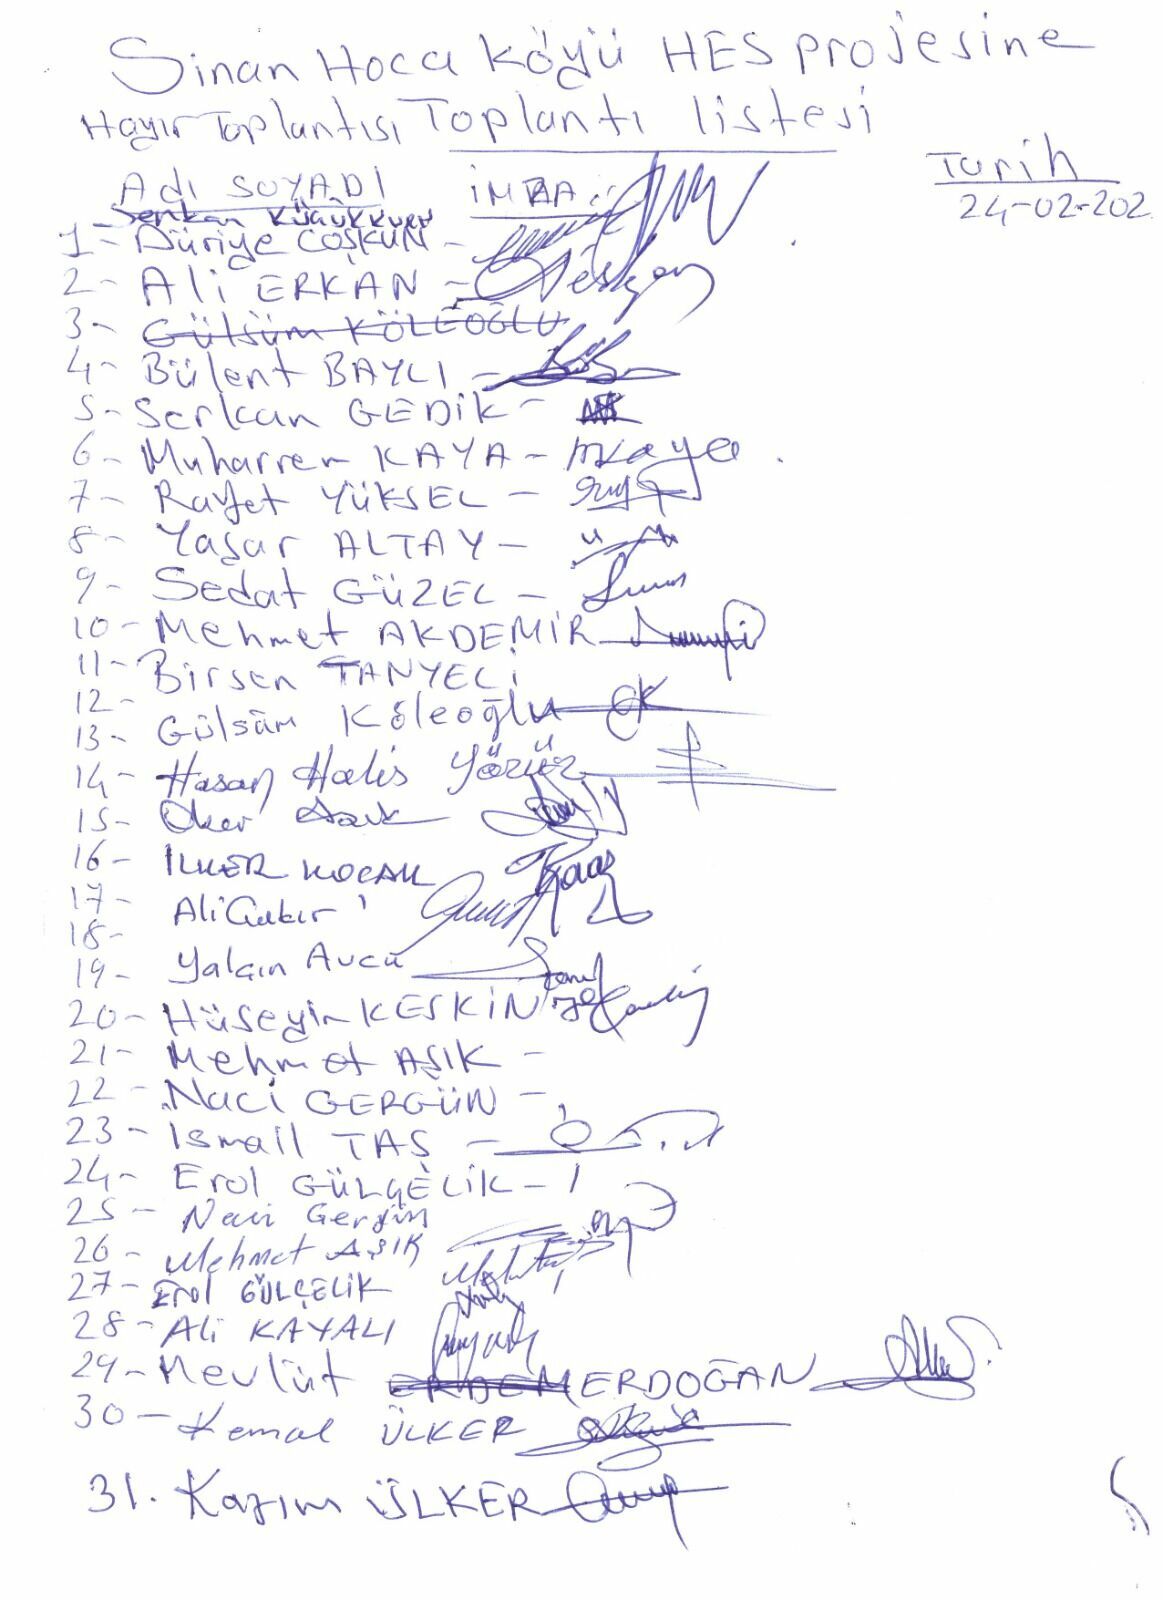 Sinan Hoca Köyü HES projesine
Hayır Toplantısı Toplantı listesi
Tarih
24-02-202
Adı SOYADI İMZA:
Serkan KÜÇÜKKURU
1- Düriye COŞKUN -
2- Ali ERKAN -
3- Gülsüm KÖLEOĞLU
4- Bülent BAYLI -
5- Serkan GEDİK -
6- Muharrem KAYA - mkaya
7- Rayfet YÜKSEL -
8- Yaşar ALTAY -
9- Sedat GÜZEL -
10- Mehmet AKDEMİR
11- Birsen TANYELİ
12-
13- Gülsüm Köleoğlu
14- Hasan Halis Yözüz
15-
16- İLKER KOCAK
17- Ali
18-
19- Yalçın Avcu
20- Hüseyin KESKİN
21- Mehmet AŞIK -
22- Naci GERGÜN -
23- İsmail TAS -
24- Erol GÜLÇELİK -
25- Naci Gergün
26- Mehmet AŞIK
27- Erol GÜLÇELİK
28- Ali KAYALI
29- Mevlüt ERDEM ERDOĞAN
30- Kemal ÜLKER
31. Kazım ÜLKER